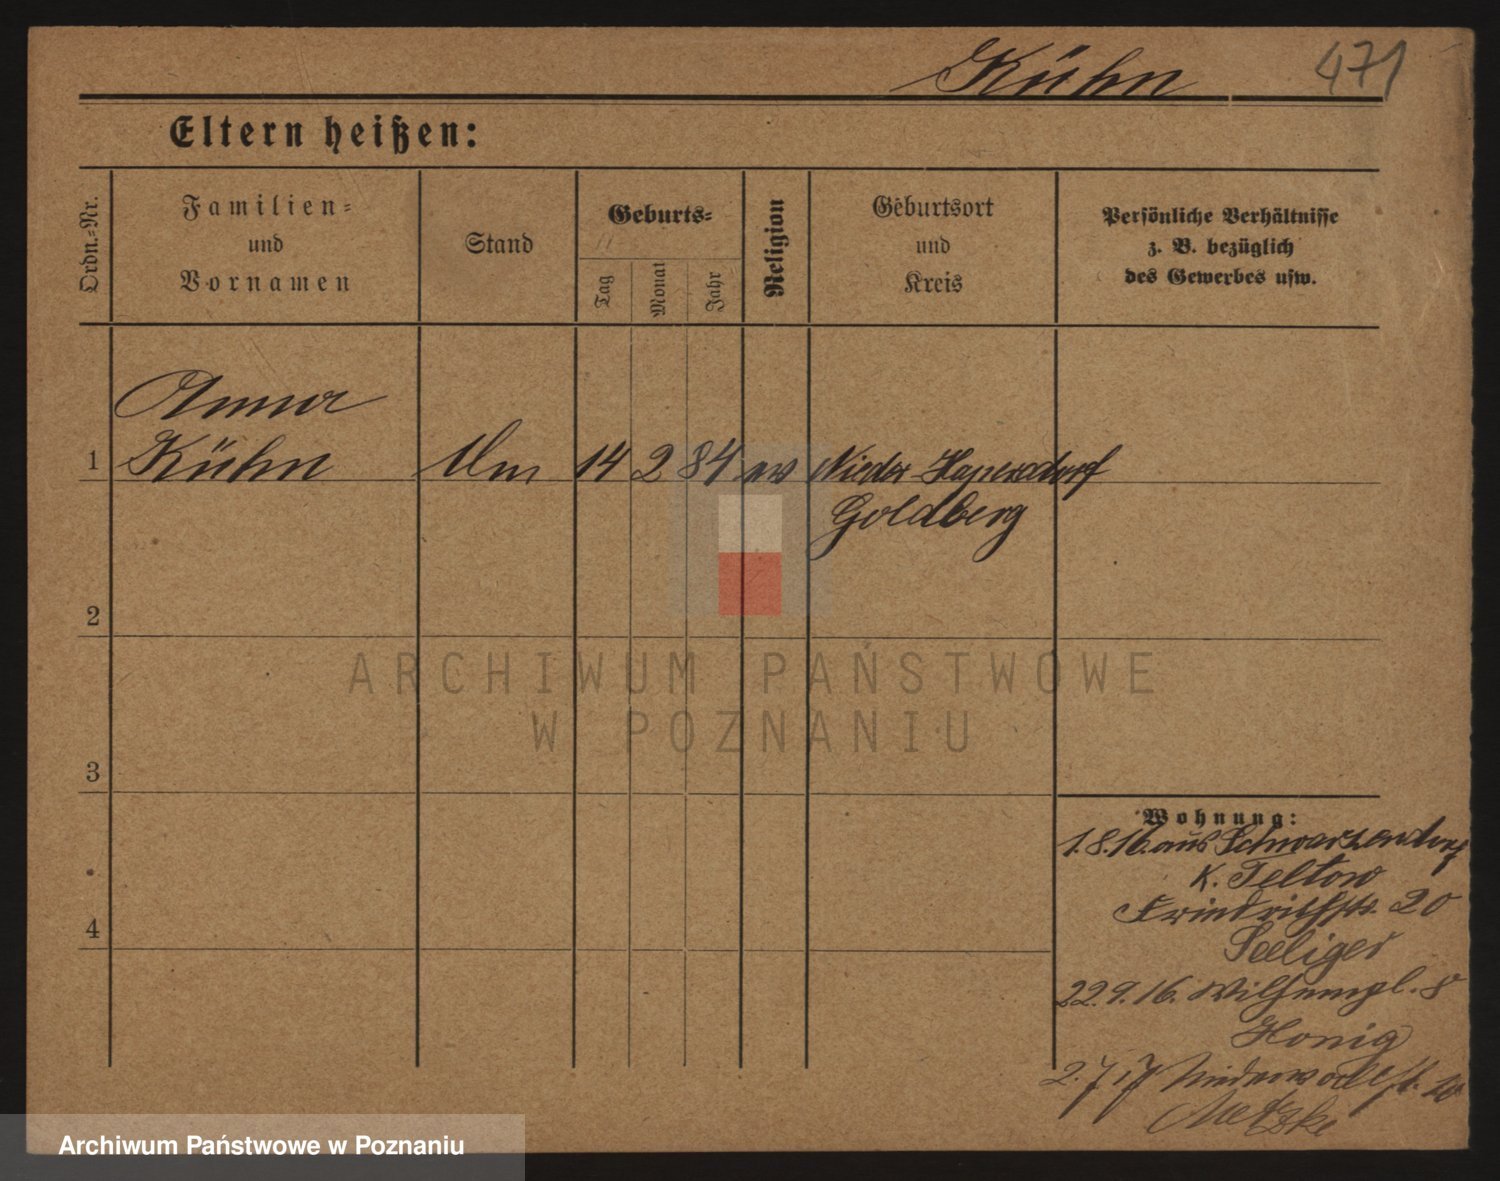 Kühn
471
Eltern heißen:
Ordn.-Nr.
Familien-
und
Vornamen
Stand
Geburts-
Tag
Monat
Jahr
Religion
Geburtsort
und
Kreis
Persönliche Verhältnisse
z. B. bezüglich
des Gewerbes usw.
Anna
1 Kühn 14 2 84 ev Nieder
Goldberg
2
ARCHIWUM PAŃSTWOWE
W POZNANIU
3
Wohnung:
1.8.16. aus
K. Teltow
Friedrichstr. 20
Seeliger
4
22.9.16. 8
Honig
2.7.17
Metzke
Archiwum Państwowe w Poznaniu